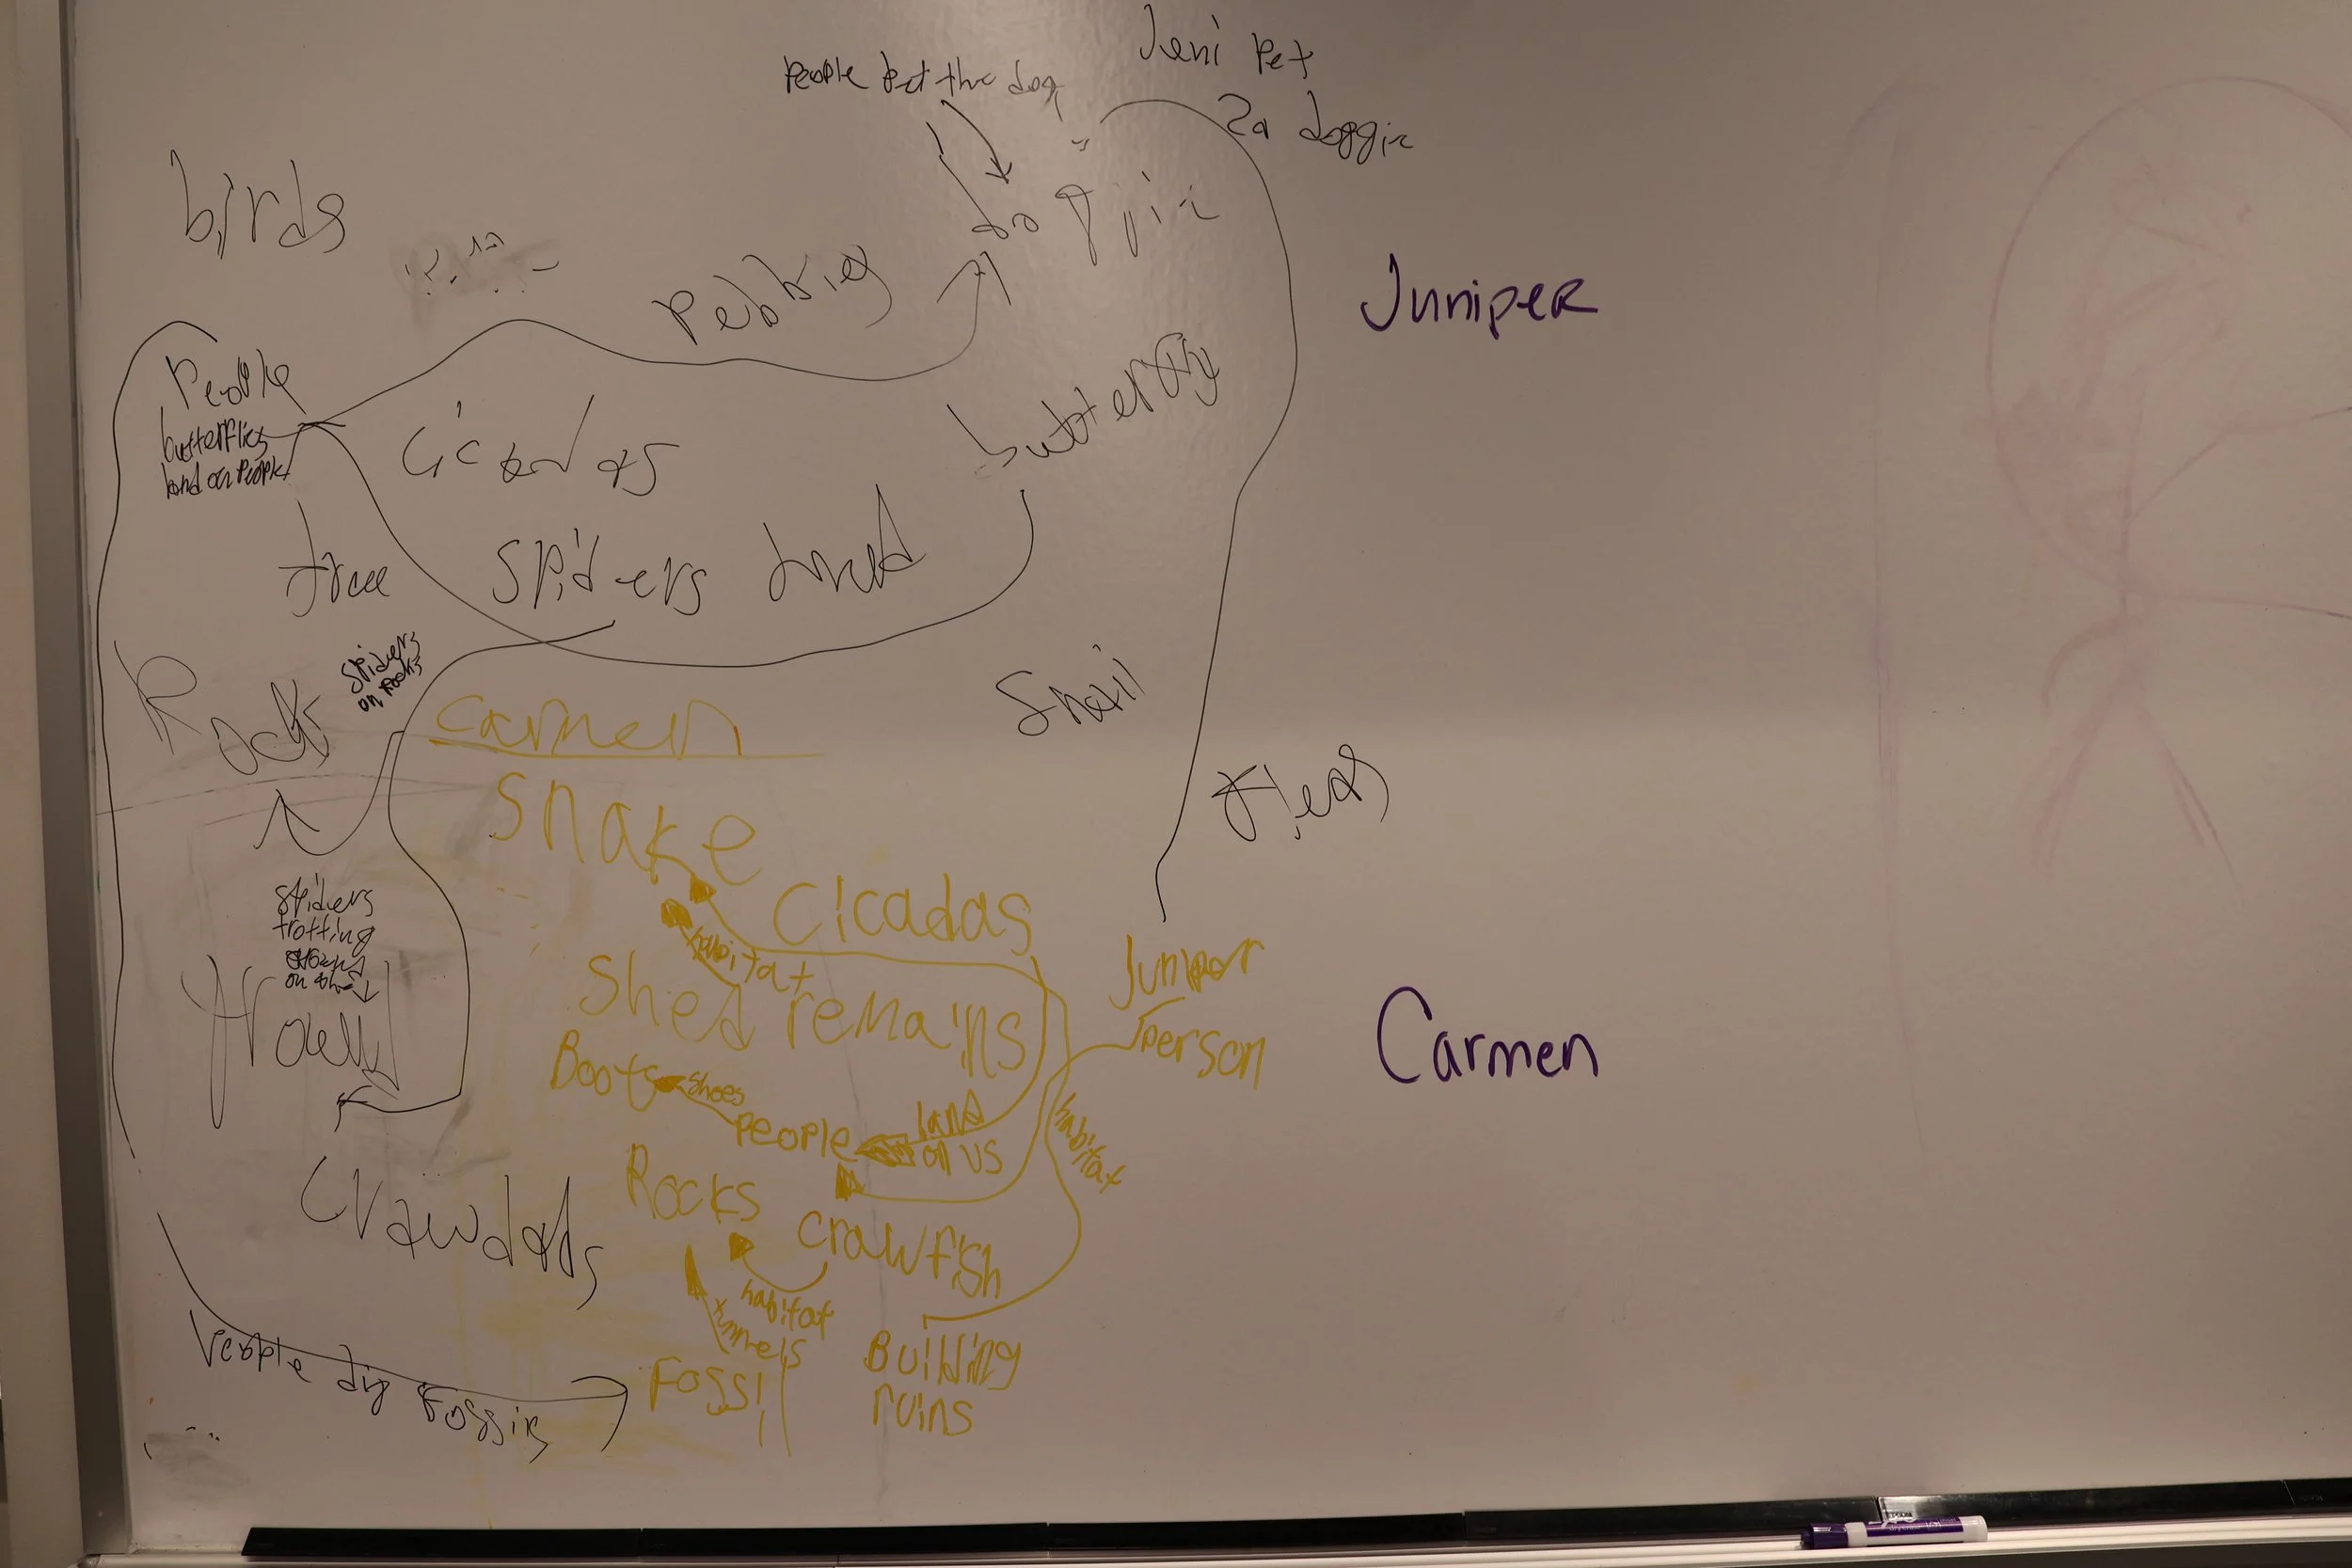 Juni Pet
People Pet the dog
2a doggie
birds
doggie
Pebbles
Juniper
People
butterflies
land on People
Cicadas
butterfly
tree
Spiders
Rock
Spiders
on rocks
Snail
carmen
snake
Fleas
Cicadas
Spiders
trotting
around
habitat
Shed remains
Juniper
person
Carmen
Boots
shoes
people
land
on us
habitat
Rocks
Crawdads
crawfish
habitat
Fossil
Building
ruins
People dig Fossils